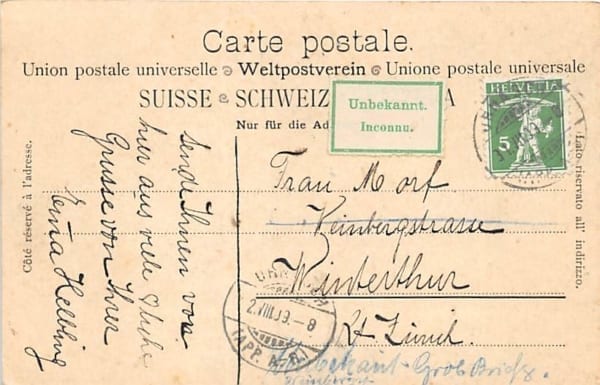 Carte postale.
Union postale universelle Weltpostverein Unione postale universale
SUISSE SCHWEIZ A
Nur für die Ad
Unbekannt.
Inconnu.
HELVETIA
5
Côté réservé à l'adresse.
Lato riservato all' indirizzo.
Sende Ihnen von
hier aus viele
Grüsse von Ihrer
Erna Helbling
Frau Morf
Weinbergstrasse
Winterthur
Kt Zürich
URNÄSCH
2.VIII.09.-8
(APP. A.R.)
Unbekannt